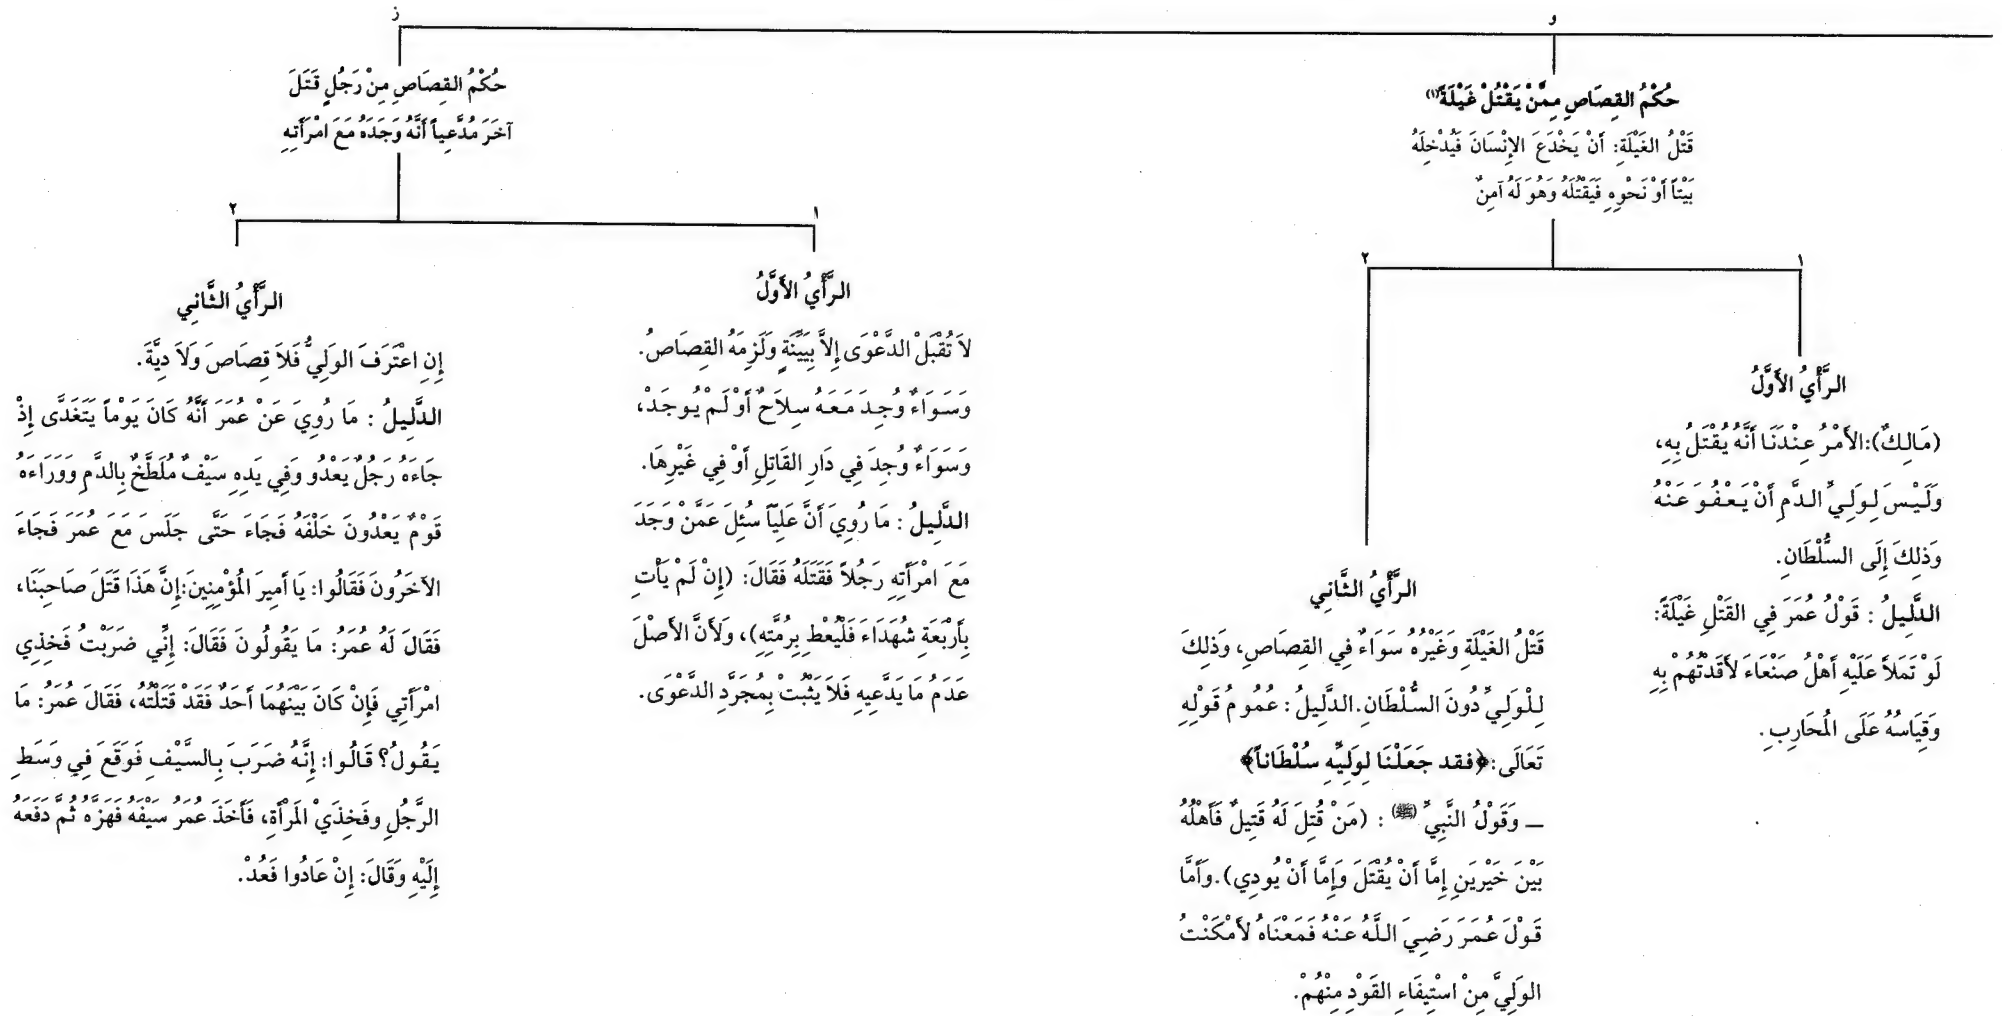 و
حُكْمُ القِصَاصِ مِمَّنْ يَقْتُلْ غَيْلَةً(١)
قَتْلُ الغَيْلَةِ: أَنْ يَخْدَعَ الإِنْسَانَ فَيُدْخِلَهُ
بَيْتاً أَوْ نَحْوِهِ فَيَقْتُلَهُ وَهُوَ لَهُ آمِنٌ
١
الرَّأْيُ الأَوَّلُ
(مَالِكٌ):الأَمْرُ عِنْدَنَا أَنَّهُ يُقْتَلُ بِهِ،
وَلَيْسَ لِوَلِيِّ الدَّمِ أَنْ يَعْفُوَ عَنْهُ
وَذلِكَ إِلَى السُّلْطَانِ.
الدَّلِيلُ : قَوْلُ عُمَرَ فِي القَتْلِ غَيْلَةً:
لَوْ تَمَلأَ عَلَيْهِ أَهْلُ صَنْعَاءَ لأَقَدْتُهُمْ بِهِ
وَقِيَاسُهُ عَلَى المُحَارِبِ.
٢
الرَّأْيُ الثَّانِي
قَتْلُ الغَيْلَةِ وَغَيْرُهُ سَوَاءٌ فِي القِصَاصِ، وَذلِكَ
لِلْوَلِيِّ دُونَ السُّلْطَانِ.الدَّلِيلُ: عُمُومُ قَوْلِهِ
تَعَالَى:﴿فقد جَعَلْنَا لِوَلِيِّهِ سُلْطَاناً﴾
ــ وَقَوْلُ النَّبِيِّ (ﷺ) : (مَنْ قُتِلَ لَهُ قَتِيلٌ فَأَهْلُهُ
بَيْنَ خَيْرَينِ إِمَّا أَنْ يُقْتَلَ وَإِمَّا أَنْ يُودِي).وَأَمَّا
قَوْلَ عُمَرَ رَضِيَ اللَّهُ عَنْهُ فَمَعْنَاهُ لأَمْكَنْتُ
الوَلِيَّ مِنْ اسْتِيفَاءِ القَوْدِ مِنْهُمْ.
ز
حُكْمُ القِصَاصِ مِنْ رَجُلٍ قَتَلَ
آخَرَ مُدَّعِياً أَنَّهُ وَجَدَهُ مَعَ امْرَأَتِهِ
١
الرَّأْيُ الأَوَّلُ
لاَ تُقْبَلْ الدَّعْوَى إِلاَّ بِبَيِّنَةٍ وَلَزِمَهُ القِصَاصُ.
وَسَوَاءٌ وُجِدَ مَعَهُ سِلاَحٌ أَوْ لَمْ يُوجَدْ،
وَسَوَاءٌ وُجِدَ فِي دَارِ القَاتِلِ أَوْ فِي غَيْرِهَا.
الدَّلِيلُ : مَا رُوِيَ أَنَّ عَلِيّاً سُئِلَ عَمَّنْ وَجَدَ
مَعَ امْرَأَتِهِ رَجُلاً فَقَتَلَهُ فَقَالَ: (إِنْ لَمْ يَأْتِ
بِأَرْبَعَةِ شُهَدَاءَ فَلْيُعْطِ بِرُمَّتِهِ)، وَلأَنَّ الأَصْلَ
عَدَمُ مَا يَدَّعِيهِ فَلاَ يَثْبُتْ بِمُجَرَّدِ الدَّعْوَى.
٢
الرَّأْيُ الثَّانِي
إِنِ اعْتَرَفَ الوَلِيُّ فَلاَ قِصَاصَ وَلاَ دِيَّةَ.
الدَّلِيلُ : مَا رُوِيَ عَنْ عُمَرَ أَنَّهُ كَانَ يَوْماً يَتَغَدَّى إِذْ
جَاءَهُ رَجُلٌ يَعْدُو وَفِي يَدِهِ سَيْفٌ مُلَطَّخٌ بِالدَّمِ وَوَرَاءَهُ
قَوْمٌ يَعْدُونَ خَلْفَهُ فَجَاءَ حَتَّى جَلَسَ مَعَ عُمَرَ فَجَاءَ
الآخَرُونَ فَقَالُوا: يَا أَمِيرَ المُؤْمِنِينَ:إِنَّ هَذَا قَتَلَ صَاحِبَنَا،
فَقَالَ لَهُ عُمَرُ: مَا يَقُولُونَ فَقَالَ: إِنِّي ضَرَبْتُ فَخِذِي
امْرَأَتِي فَإِنْ كَانَ بَيْنَهُمَا أَحَدٌ فَقَدْ قَتَلْتُهُ، فَقَالَ عُمَرُ: مَا
يَقُولُ؟ قَالُوا: إِنَّهُ ضَرَبَ بِالسَّيْفِ فَوَقَعَ فِي وَسَطِ
الرَّجُلِ وفَخِذَيْ المَرْأَةِ، فَأَخَذَ عُمَرُ سَيْفَهُ فَهَزَّهُ ثُمَّ دَفَعَهُ
إِلَيْهِ وَقَالَ: إِنْ عَادُوا فَعُدْ.